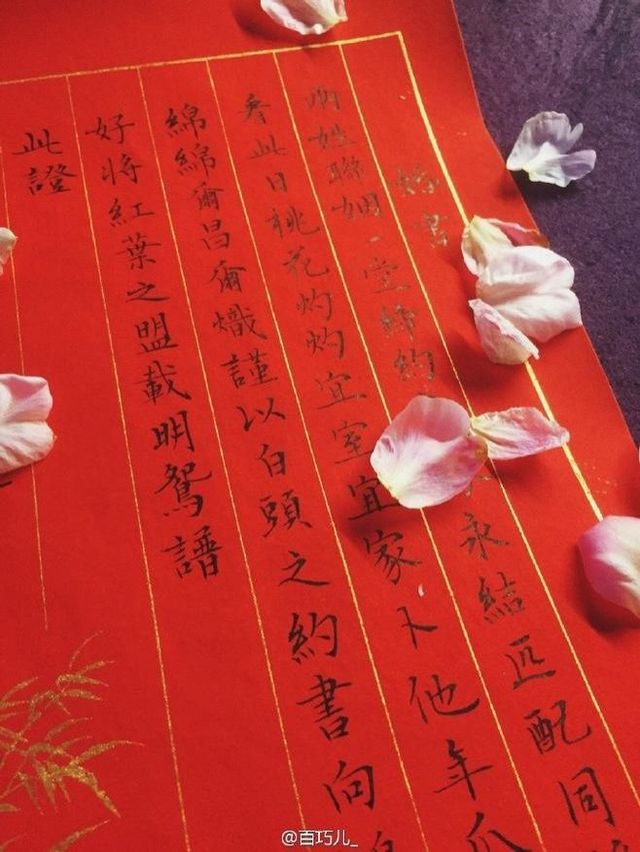 婚書
兩姓聯姻一堂締約
永結匹配同
看此日桃花灼灼宜室宜家卜他年瓜
綿綿爾昌爾熾謹以白頭之約書向
好將紅葉之盟載明鴛譜
此證
@百巧儿_